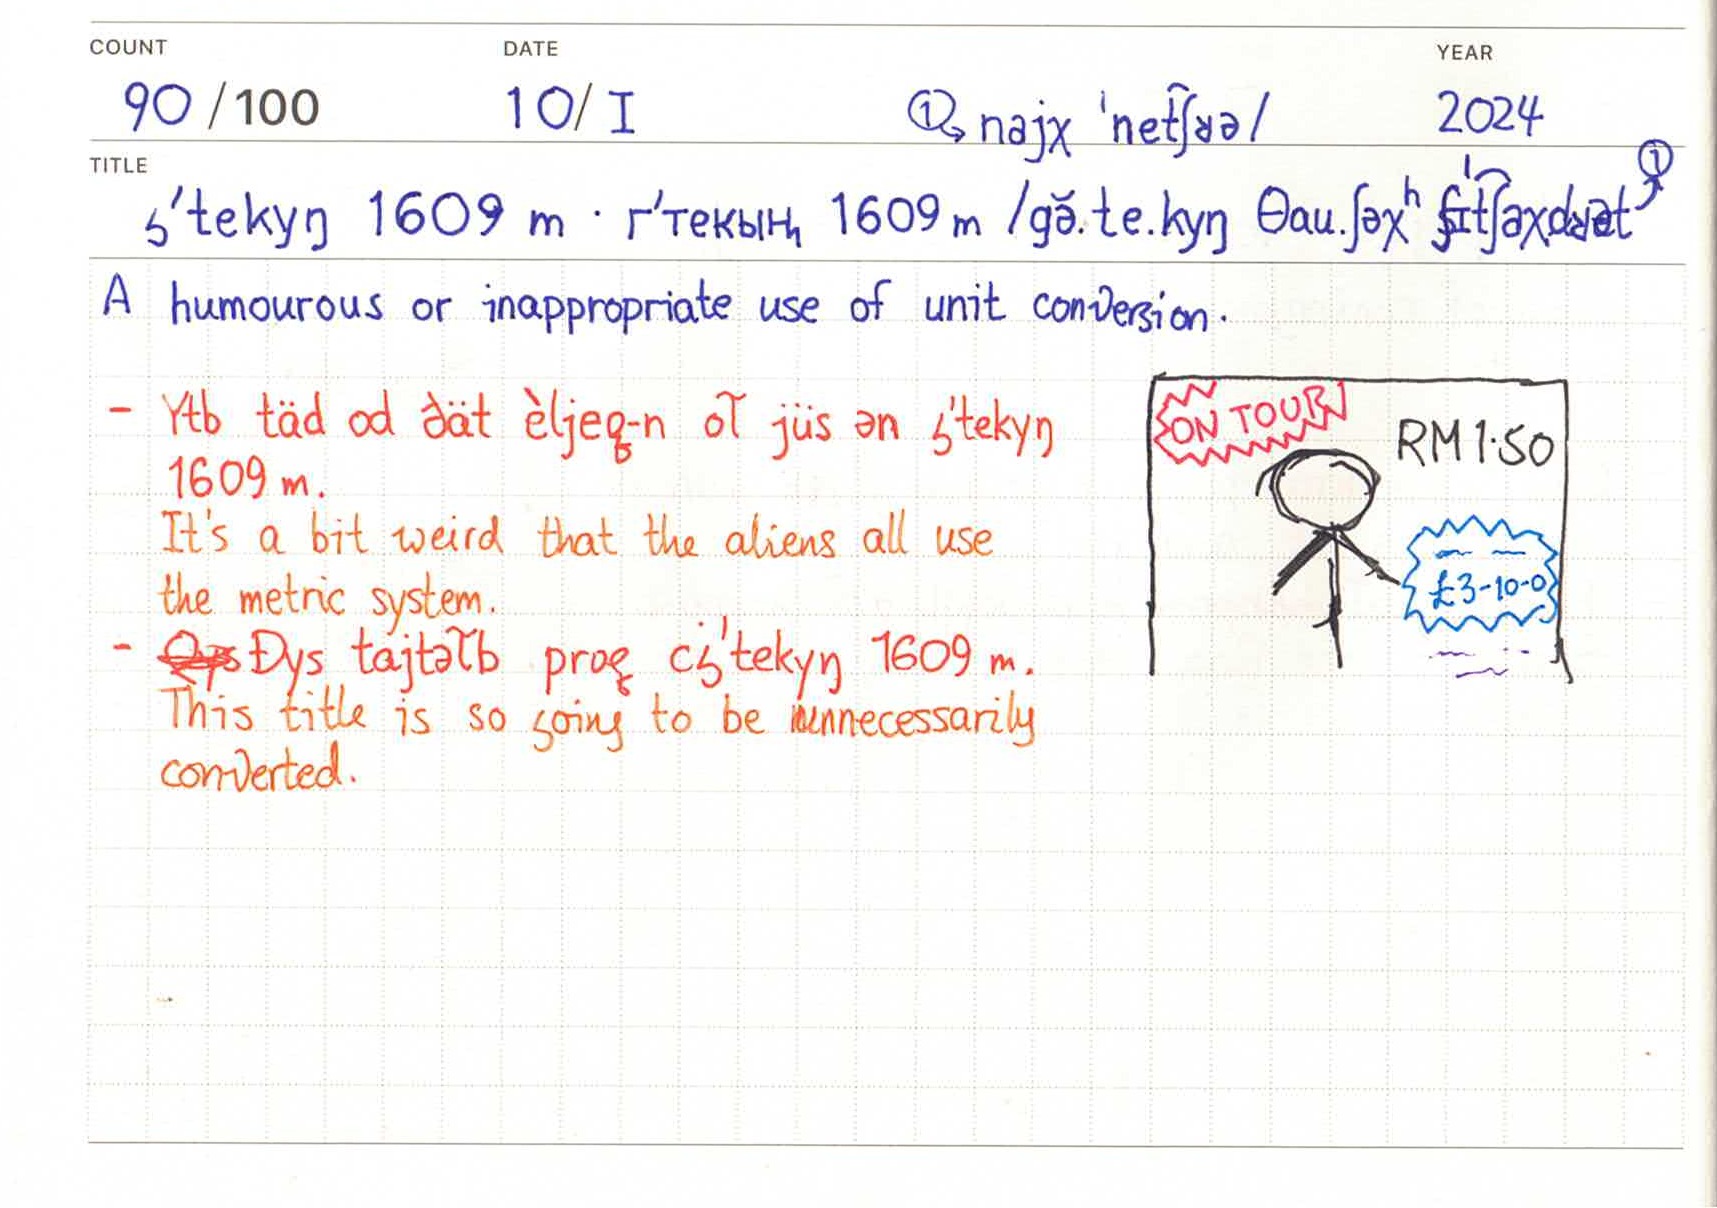 COUNT DATE YEAR
90 / 100 10/I ① najχ ˈnet͡ʃʁə/ 2024
TITLE
ꜿ'tekyŋ 1609 m · г'текыӊ 1609 m /gə̆.te.kyŋ θau.ʃəχʰ ①
A humourous or inappropriate use of unit conversion.
- Ytb täd od ðät èljeq-n ol̃ jüs ən 'tekyŋ
1609 m.
It's a bit weird that the aliens all use
the metric system.
- Ðys tajtəl̃b 1609 m.
This title is so going to be unnecessarily
converted.
ON TOUR
RM 1·50
£3-10-0